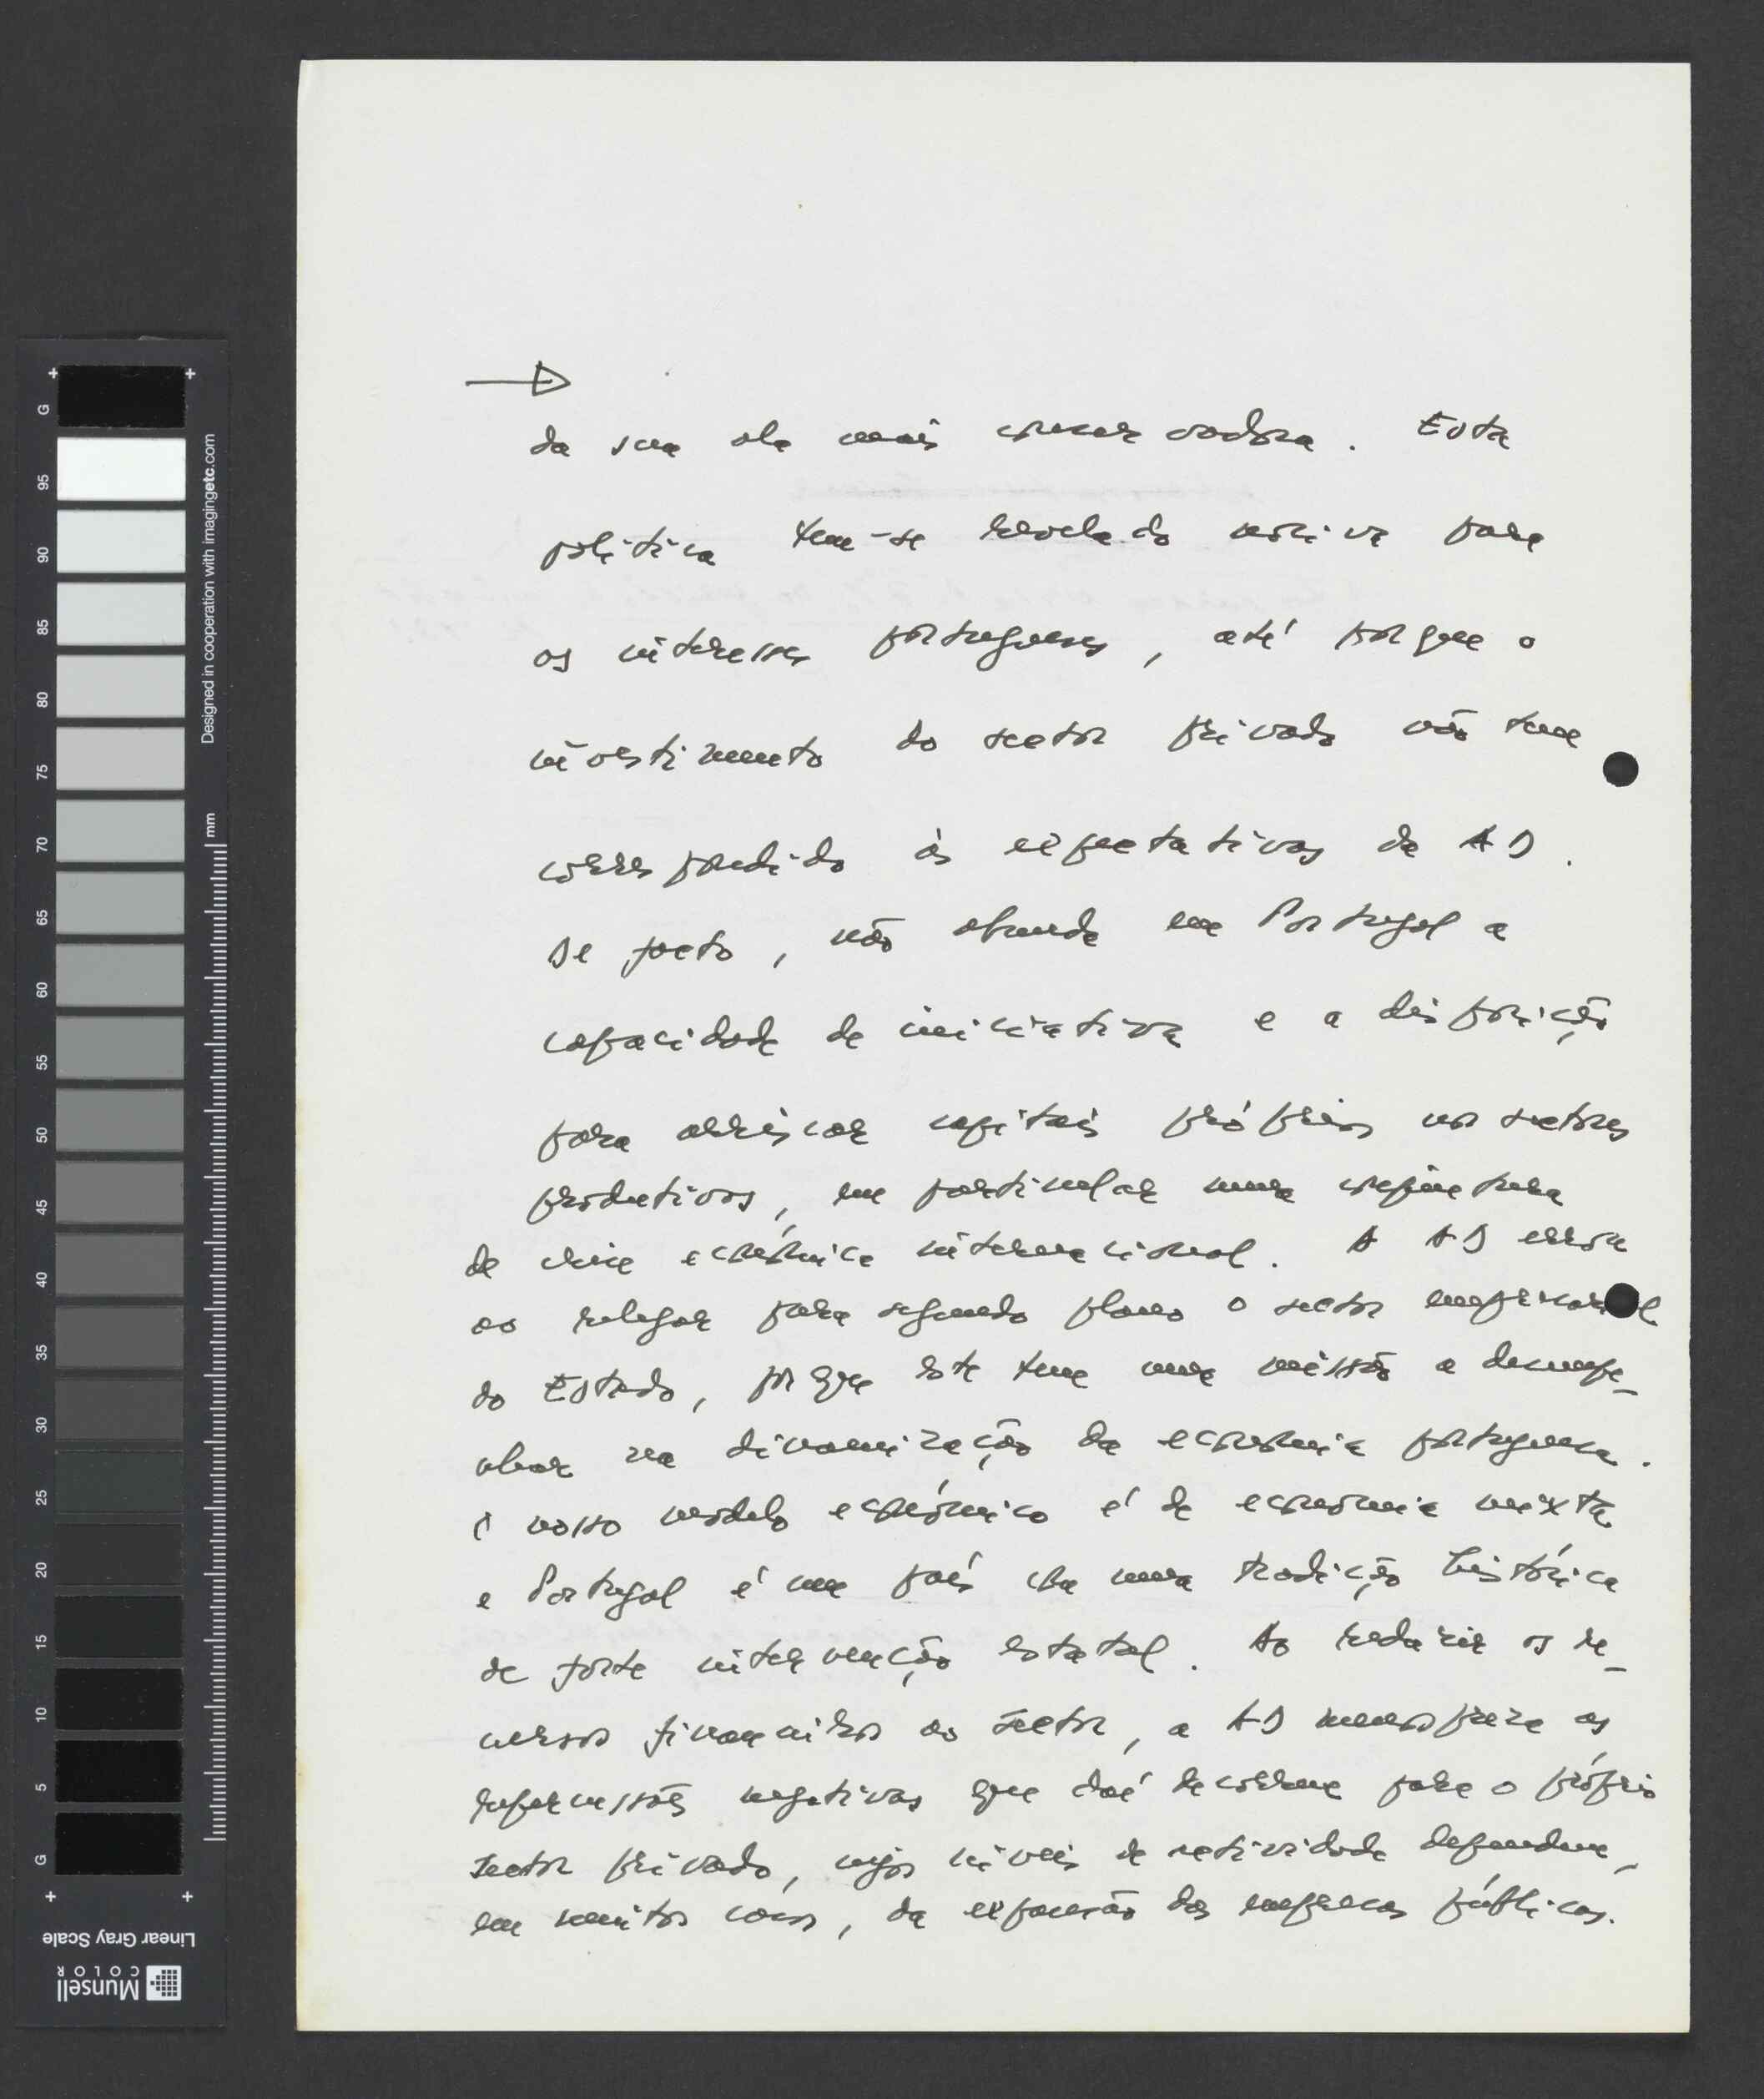 →
da sua ala mais conservadora. Esta
política tem-se revelado nociva para
os interesses portugueses, até porque o
investimento do sector privado não tem
correspondido às expectativas da AD.
De facto, não abunda em Portugal a
capacidade de iniciativa e a disposição
para arriscar capitais próprios nos sectores
produtivos, em particular numa conjuntura
de crise económica internacional. A AD errou
ao relegar para segundo plano o sector empresarial
do Estado, porque este tem uma missão a desempe-
nhar na dinamização da economia portuguesa.
O nosso modelo económico é de economia mixta
e Portugal é um país com uma tradição histórica
de forte intervenção estatal. Ao reduzir os re-
cursos financeiros ao sector, a AD menospreza as
repercussões negativas que daí decorrem para o próprio
sector privado, cujos níveis de actividade dependem,
em muitos casos, da expansão das empresas públicas.
G 95 90 85 80 75 70 65 60 55 50 45 40 35 30 25 20 15 10 5 G
mm
Designed in cooperation with imagingetc.com
Linear Gray Scale
Munsell
COLOR